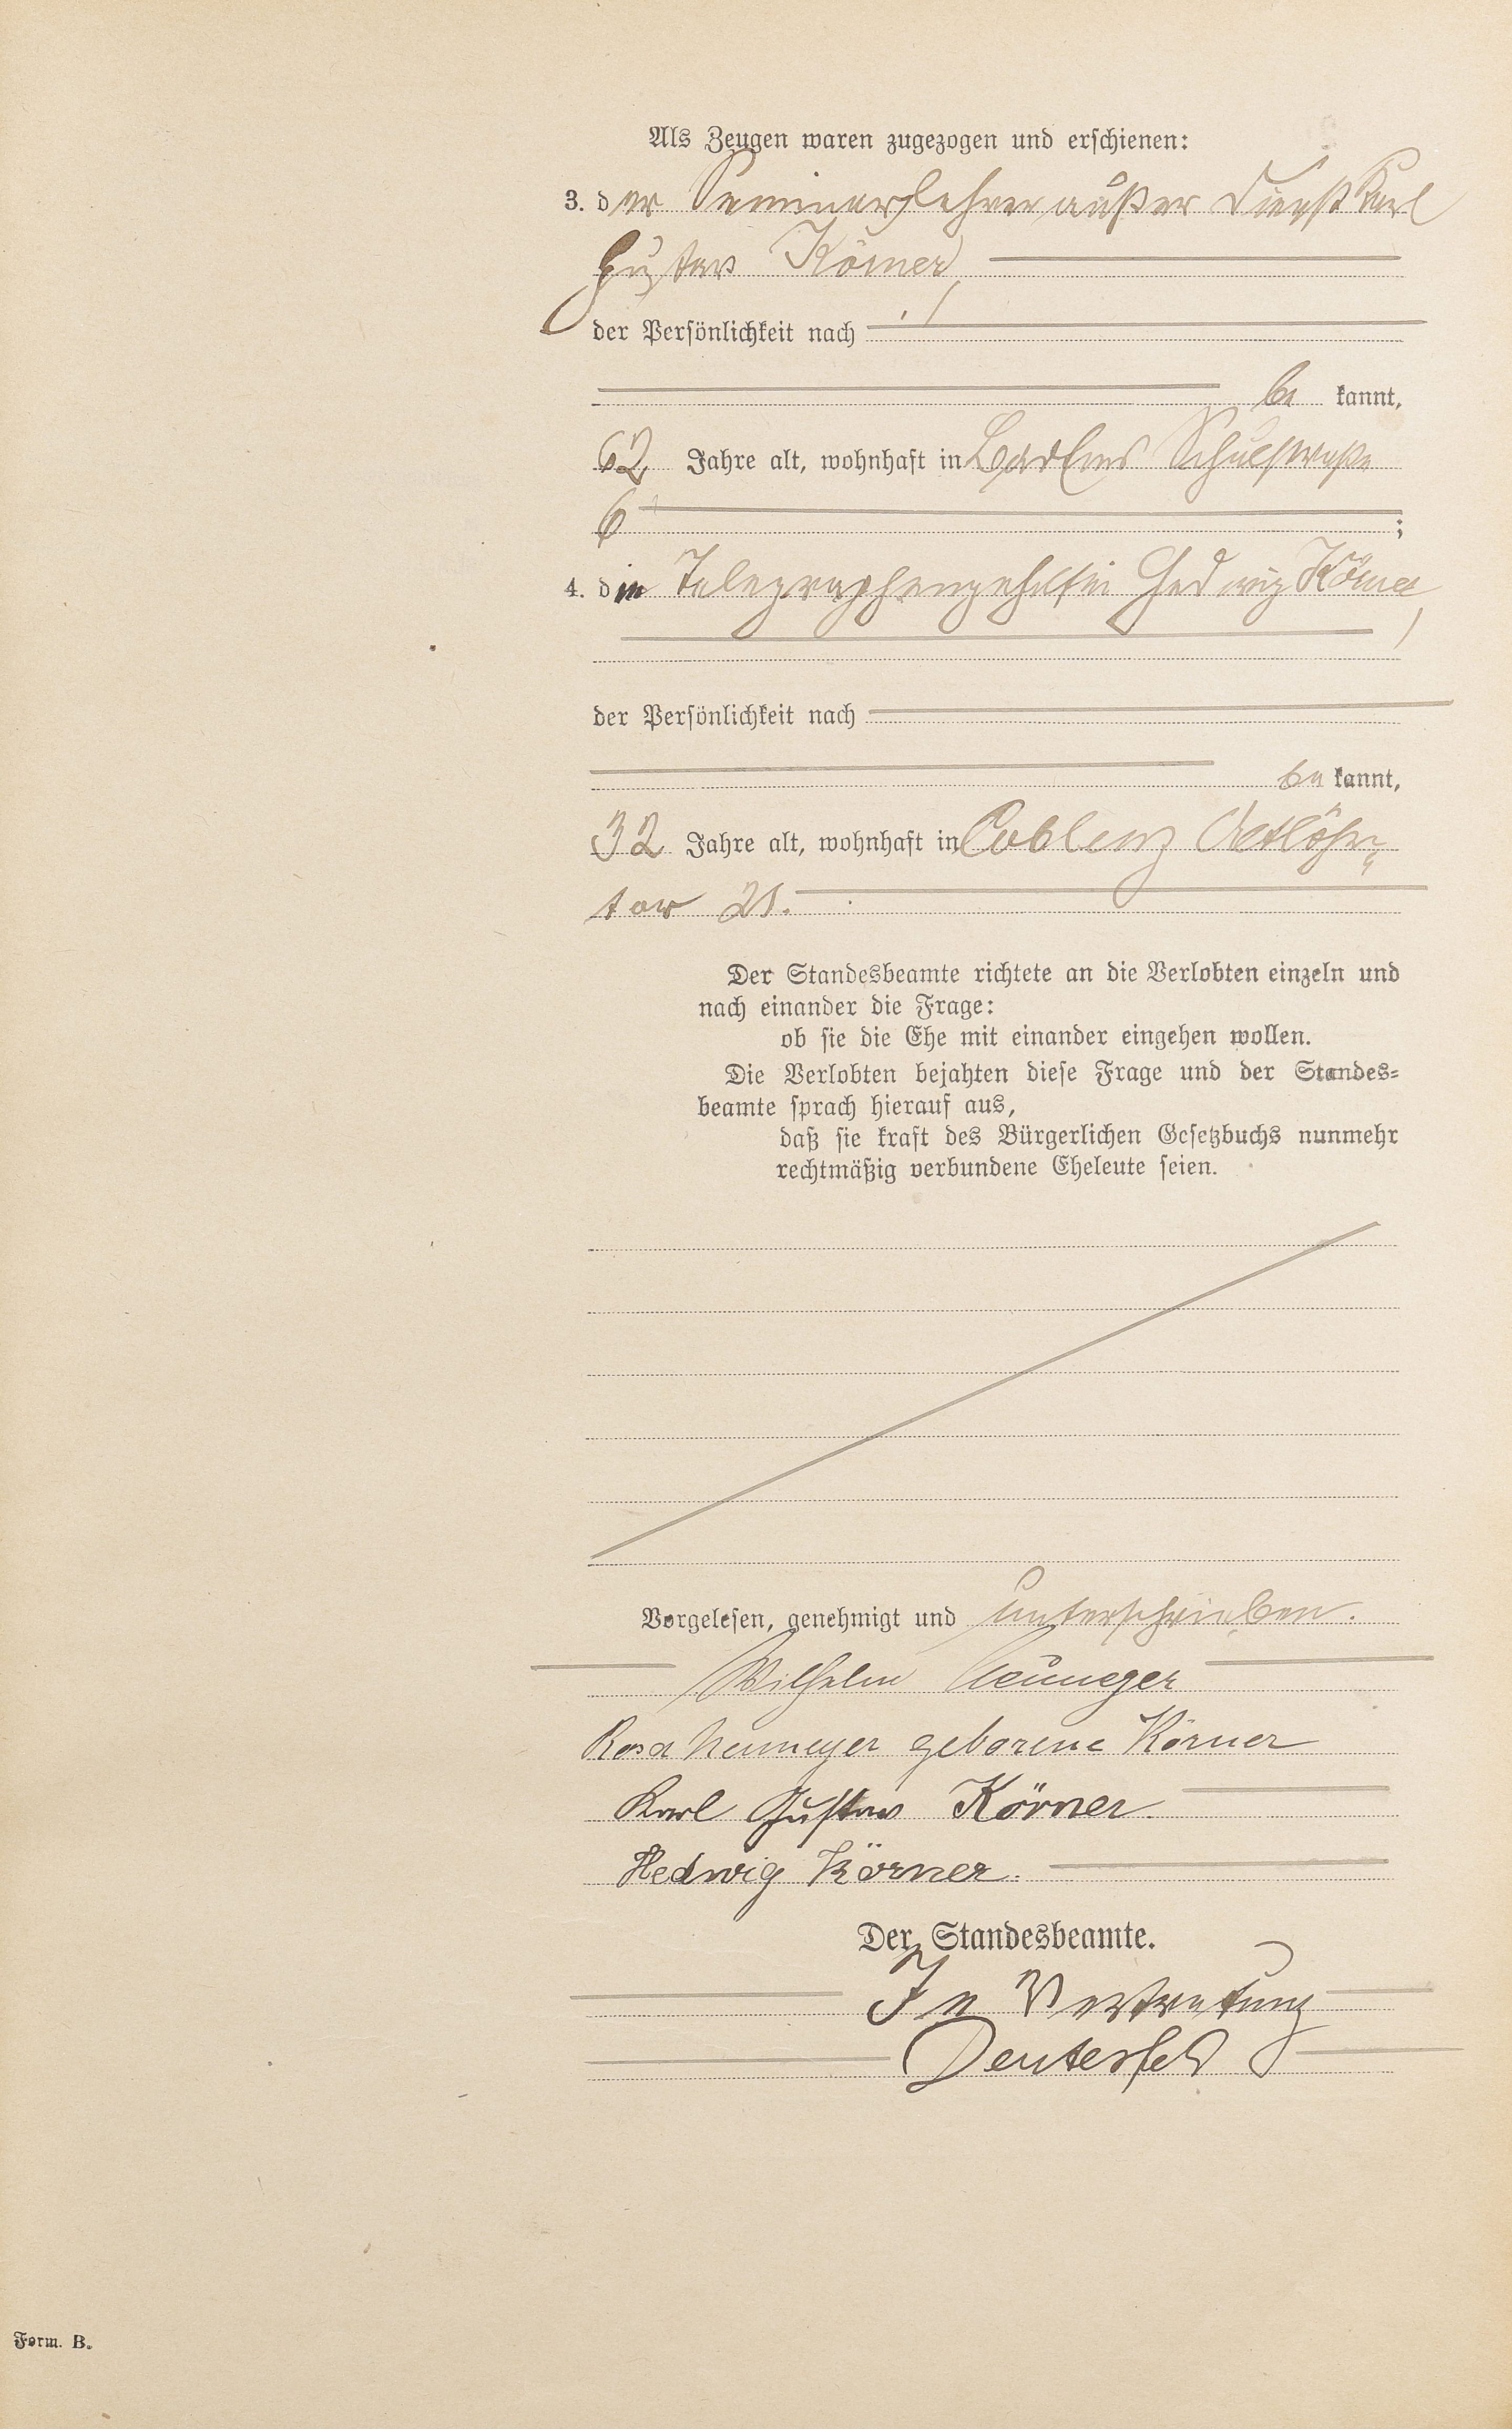 Als Zeugen waren zugezogen und erschienen:
3. der Seminarlehrer außer Dienst Karl
Gustav Körner,
der Persönlichkeit nach
be kannt,
62 Jahre alt, wohnhaft in Bad Ems Schulstraße
6 ;
4. die Telegraphengehilfin Hedwig Körner,
der Persönlichkeit nach
be kannt,
32 Jahre alt, wohnhaft in Coblenz Altlöhr-
tor 21.
Der Standesbeamte richtete an die Verlobten einzeln und
nach einander die Frage:
ob sie die Ehe mit einander eingehen wollen.
Die Verlobten bejahten diese Frage und der Standes-
beamte sprach hierauf aus,
daß sie kraft des Bürgerlichen Gesetzbuchs nunmehr
rechtmäßig verbundene Eheleute seien.
Vorgelesen, genehmigt und unterschrieben.
Wilhelm Neumeyer
Rosa Neumeyer geborene Körner
Karl Gustav Körner.
Hedwig Körner.
Der Standesbeamte.
In Vertretung
Form. B.